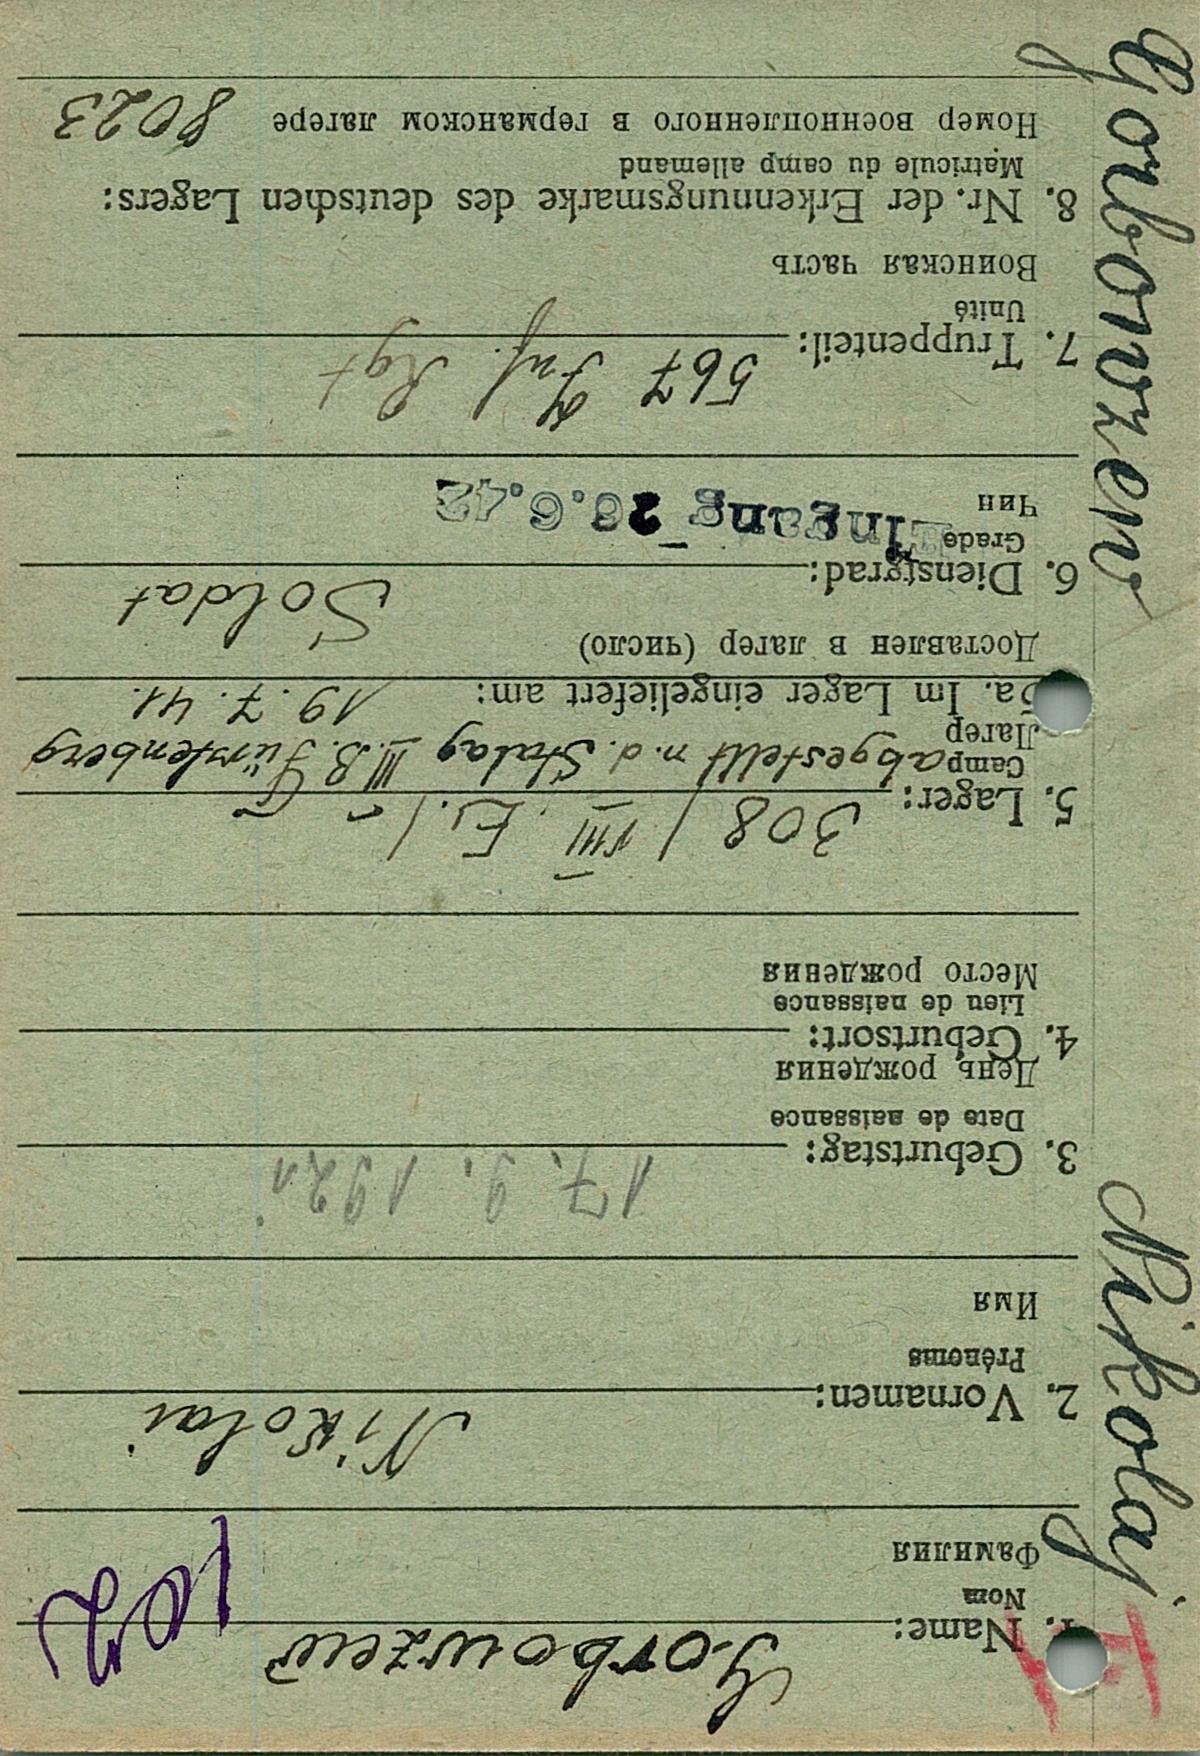 Gorbowzew
102
1. Name:
Nom
Фамилия
Nikolai
2. Vornamen:
Prénoms
Имя
17. 9. 1921
3. Geburtstag:
Date de naissance
День рождения
4. Geburtsort:
Lieu de naissance
Место рождения
308 / VIII. E. /
5. Lager:
Camp abgestellt n. d. Stalag III.B. Fürstenberg
Лагер
5a. Im Lager eingeliefert am: 19. 7. 41.
Доставлен в лагер (число)
Soldat
6. Dienstgrad:
Grade
Eingang 26.6.42
Чин
567 Inf. Rgt
7. Truppenteil:
Unité
Воинская часть
8. Nr. der Erkennungsmarke des deutschen Lagers:
Matricule du camp allemand
Номер военнопленного в германском лагере 8023
Nikolaj Gorbowzew